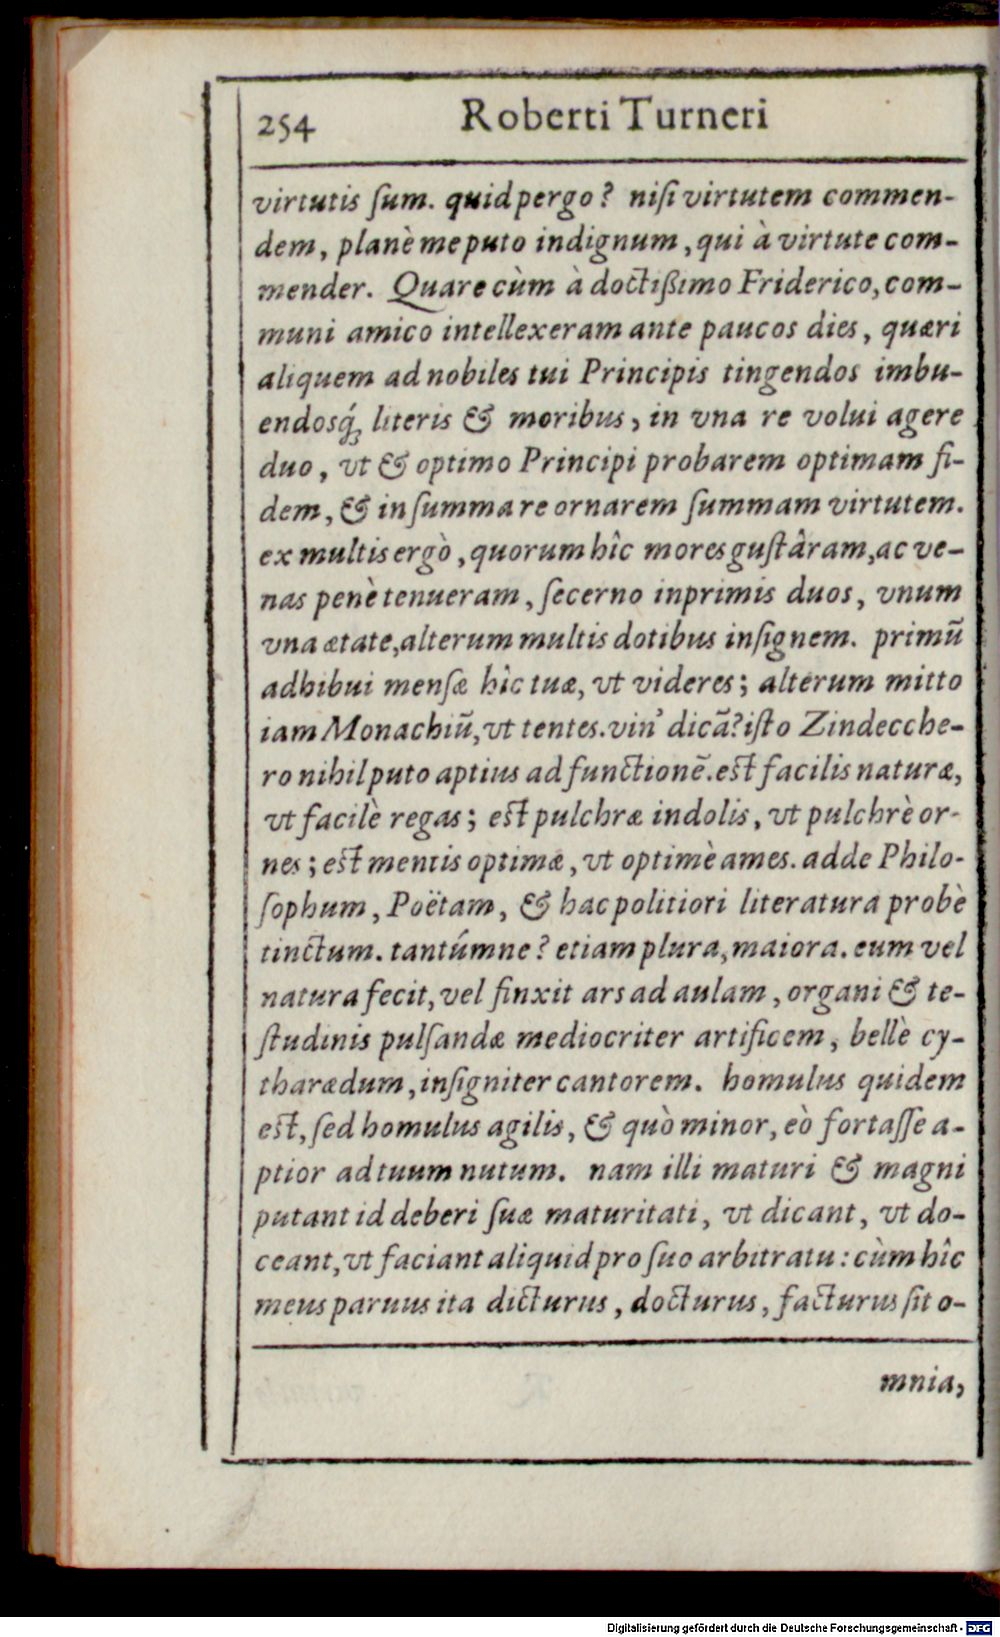 254 Roberti Turneri
virtutis ſum. quid pergo? niſi virtutem commen-
dem, planè me puto indignum, qui à virtute com-
mender. Quare cùm à doctißimo Friderico, com-
muni amico intellexeram ante paucos dies, quæri
aliquem ad nobiles tui Principis tingendos imbu-
endosq́; literis & moribus, in vna re volui agere
duo, vt & optimo Principi probarem optimam fi-
dem, & in ſumma re ornarem ſummam virtutem.
ex multis ergò, quorum hîc mores guſtâram, ac ve-
nas penè tenueram, ſecerno inprimis duos, vnum
vna ætate, alterum multis dotibus inſignem. primũ
adhibui menſæ hîc tuæ, vt videres; alterum mitto
iam Monachiũ, vt tentes. vin' dicã? iſto Zindecche-
ro nihil puto aptius ad functionẽ. eſt facilis naturæ,
vt facilè regas; eſt pulchræ indolis, vt pulchrè or-
nes; eſt mentis optimæ, vt optimè ames. adde Philo-
ſophum, Poëtam, & hac politiori literatura probè
tinctum. tantúmne? etiam plura, maiora. eum vel
natura fecit, vel finxit ars ad aulam, organi & te-
ſtudinis pulſandæ mediocriter artificem, bellè cy-
tharædum, inſigniter cantorem. homulus quidem
eſt, ſed homulus agilis, & quò minor, eò fortaſſe a-
ptior ad tuum nutum. nam illi maturi & magni
putant id deberi ſuæ maturitati, vt dicant, vt do-
ceant, vt faciant aliquid pro ſuo arbitratu: cùm hîc
meus paruus ita dicturus, docturus, facturus ſit o-
mnia,
Digitalisierung gefördert durch die Deutsche Forschungsgemeinschaft - DFG